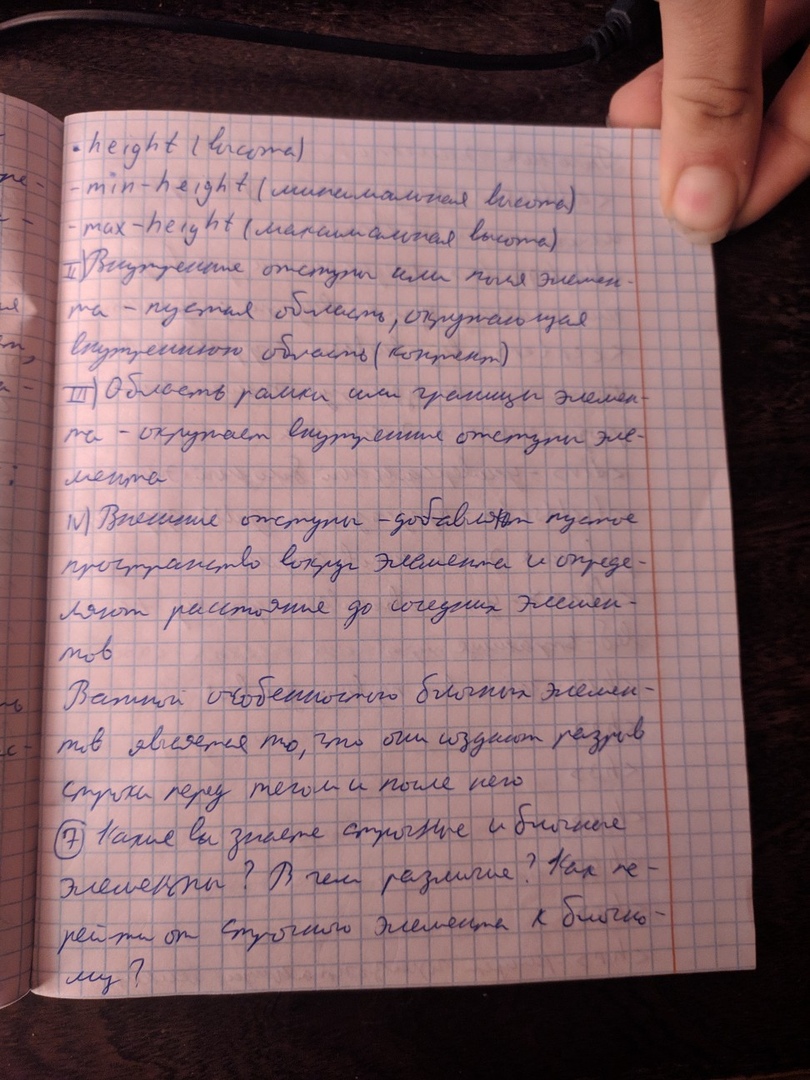 • height (высота)
- min-height (минимальная высота)
- max-height (максимальная высота)
II) Внутренние отступы или поля элемен-
та - пустая область, окружающая
внутреннюю область (контент)
III) Область рамки или границы элемен-
та - окружает внутренние отступы эле-
мента
IV) Внешние отступы - добавляют пустое
пространство вокруг элемента и опреде-
ляют расстояние до соседних элемен-
тов
Важной особенностью блочных элемен-
тов является то, что они создают разрыв
строки перед тегом и после него
7 Какие вы знаете строчные и блочные
элементы? В чем различие? Как пе-
рейти от строчного элемента к блочно-
му?